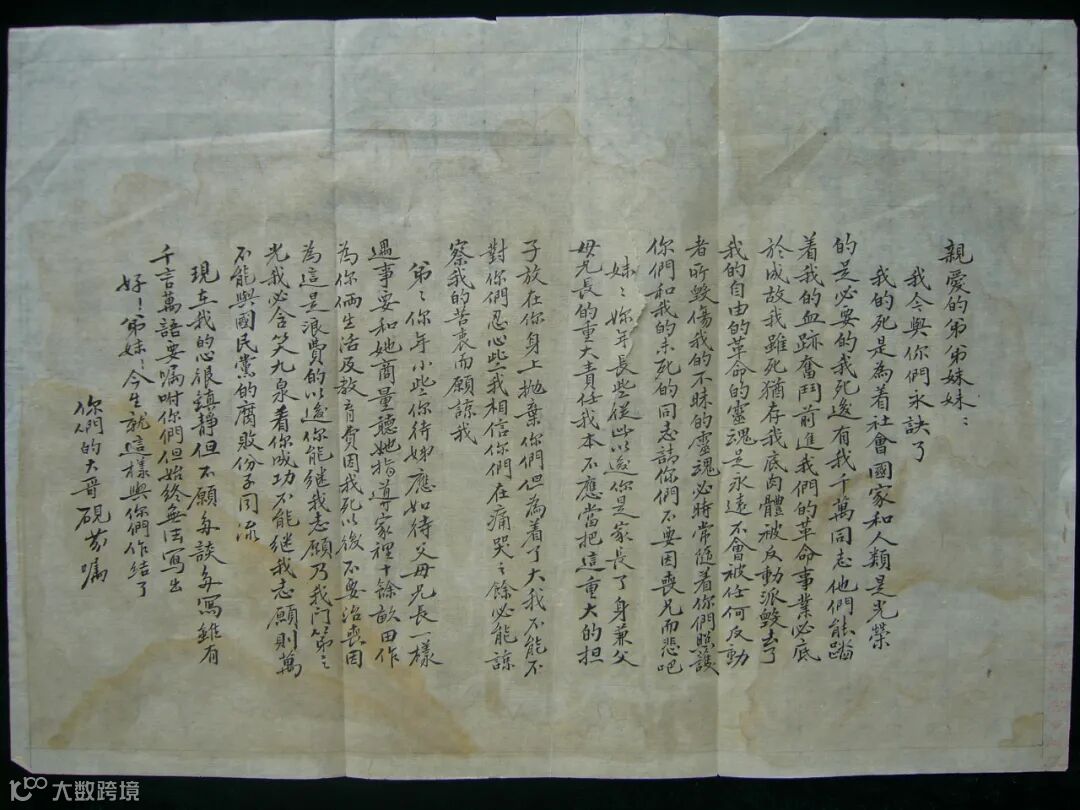 親愛的弟弟妹妹：
我今與你們永訣了
我的死是為着社會國家和人類是光榮
的是必要的我死後有我千萬同志他們能踏
着我的血跡奮鬥前進我們的革命事業必底
於成故我雖死猶存我底肉體被反動派毀去了
我的自由的革命的靈魂是永遠不會被任何反動
者所毀傷我的不昧的靈魂必時常隨着你們照護
你們和我的未死的同志請你們不要因喪兄而悲吧
妹妹妳年長些從此以後你是家長了身兼父
母兄長的重大責任我本不應當把這重大的担
子放在你身上抛棄你們但為着了大我不能不
對你們忍心些我相信你們在痛哭之餘必能諒
察我的苦衷而願諒我
弟弟你年小些你待姊應如待父母兄長一樣
遇事要和她商量聽她指導家裡十餘畝田作
為你倆生活及教育費因我死以後不要治喪因
為這是浪費的以後你能繼我志願乃我門第之
光我必含笑九泉看你成功不能繼我志願則萬
不能與國民黨的腐敗份子同流
現在我的心很鎮靜但不願多談多寫雖有
千言萬語要囑咐你們但始終無法寫出
好！弟妹！今生就這樣與你們作結了
你們的大哥硯芬囑
大数跨境